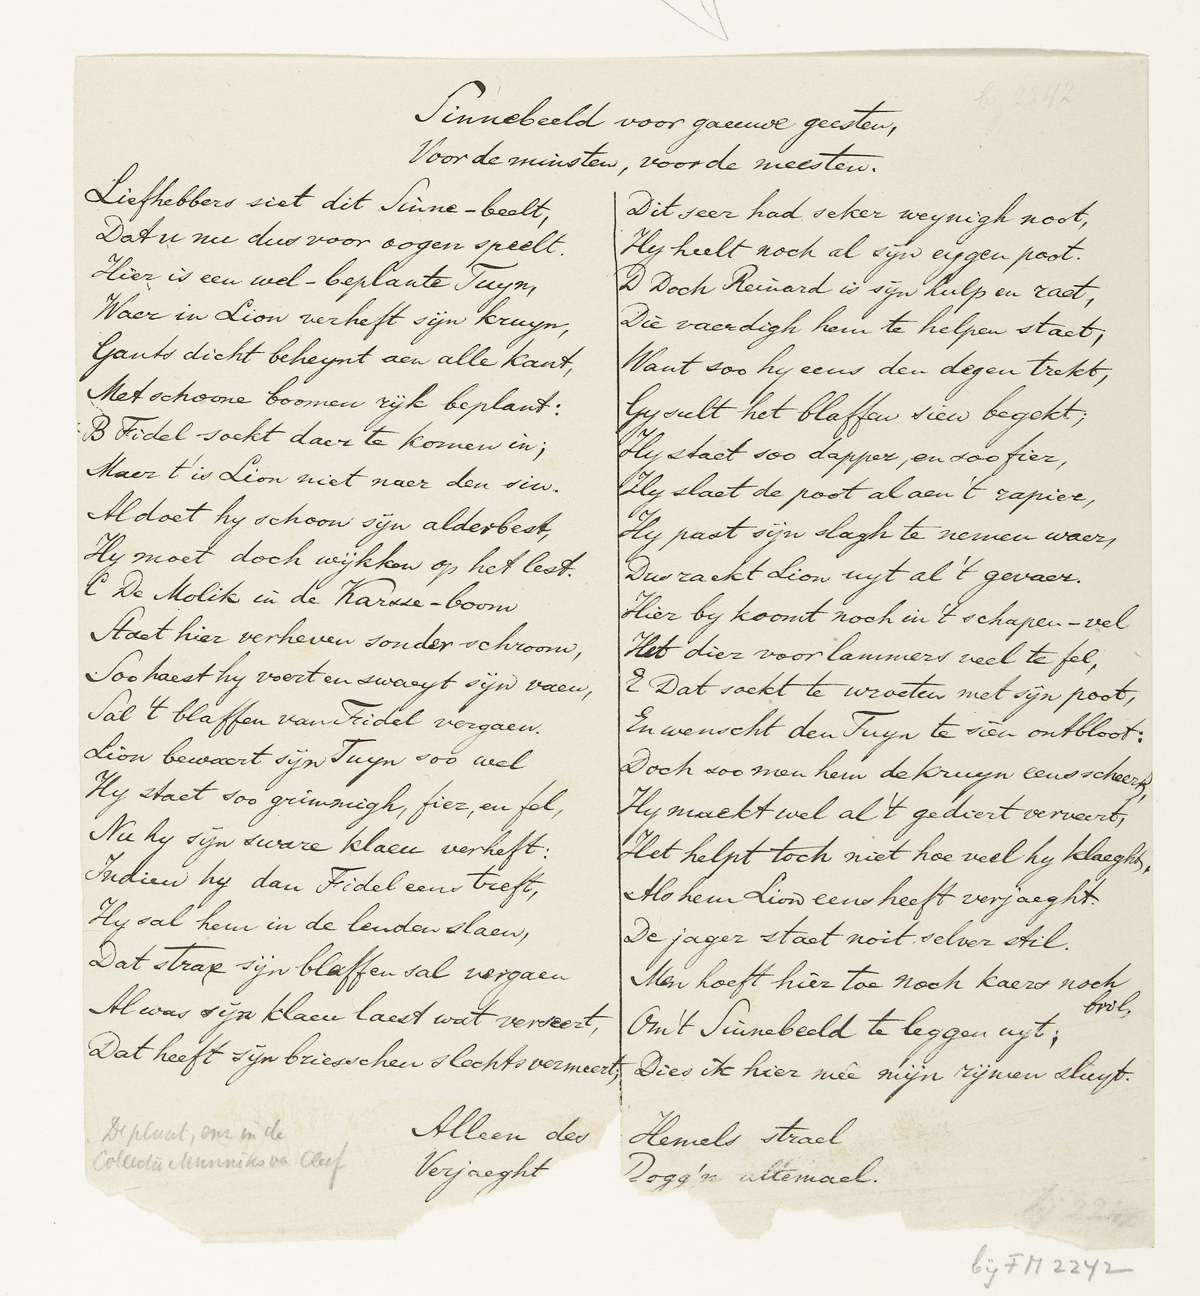 Sinnebeeld voor gaeuwe geesten,
Voor de minsten, voor de meesten.
Liefhebbers siet dit Sinne-beelt,
Dat u nu dus voor oogen speelt.
Hier is een wel-beplante Tuyn,
Waer in Lion verheft sÿn kruyn,
Gants dicht beheynt aen alle kant,
Met schoone boomen rÿk beplant:
B Fidel soekt daer te komen in;
Maer t'is Lion niet naer den sin.
Al doet hy schoon sÿn alderbest,
Hy moet doch wÿkken op het lest.
C De Molik in de Karsse-boom
Staet hier verheven sonder schroom,
Soo haest hy voert en swaeyt sÿn vaen,
Sal 't blaffen van Fidel vergaen.
Lion bewaert sÿn Tuyn soo wel
Hy staet soo grimmigh, fier, en fel,
Nu hy sÿn sware klaeu verheft:
Indien hy dan Fidel eens treft,
Hy sal hem in de lenden slaen,
Dat strax sÿn blaffen sal vergaen
Al was sÿn klaeu laest wat verseert,
Dat heeft sÿn briesschen slechts vermeert;
Dit seer had seker weynigh noot,
Hy heelt noch al sÿn eygen poot.
D Doch Reinard is sÿn hulp en raet,
Die vaerdigh hem te helpen staet;
Want soo hy eens den degen trekt,
Gy sult het blaffen sien begekt;
Hy staet soo dapper, en soo fier,
Hy slaet de poot al aen 't rapier,
Hy past sÿn slagh te nemen waer,
Dus raekt Lion uyt al 't gevaer.
Hier by koomt noch in 't schapen-vel
Het dier voor lammers veel te fel,
E Dat soekt te wroeten met sÿn poot,
En wenscht den Tuyn te sien ontbloot:
Doch soo men hem de kruyn eens scheert,
Hy maekt wel al 't gediert verveert,
Het helpt toch niet hoe veel hy klaeght,
Als hem Lion eens heeft verjaeght.
De jager staet noit selver stil.
Men hoeft hier toe noch kaers noch
bril,
Om't Sinnebeeld te leggen uyt;
Dies ik hier mêe mÿn rÿmen sluyt.
Alleen des Hemels strael
Verjaeght Dogg'n altemael.
De plaat, enz in de
Collectie Munniks va Cleef
bÿ FM 2242